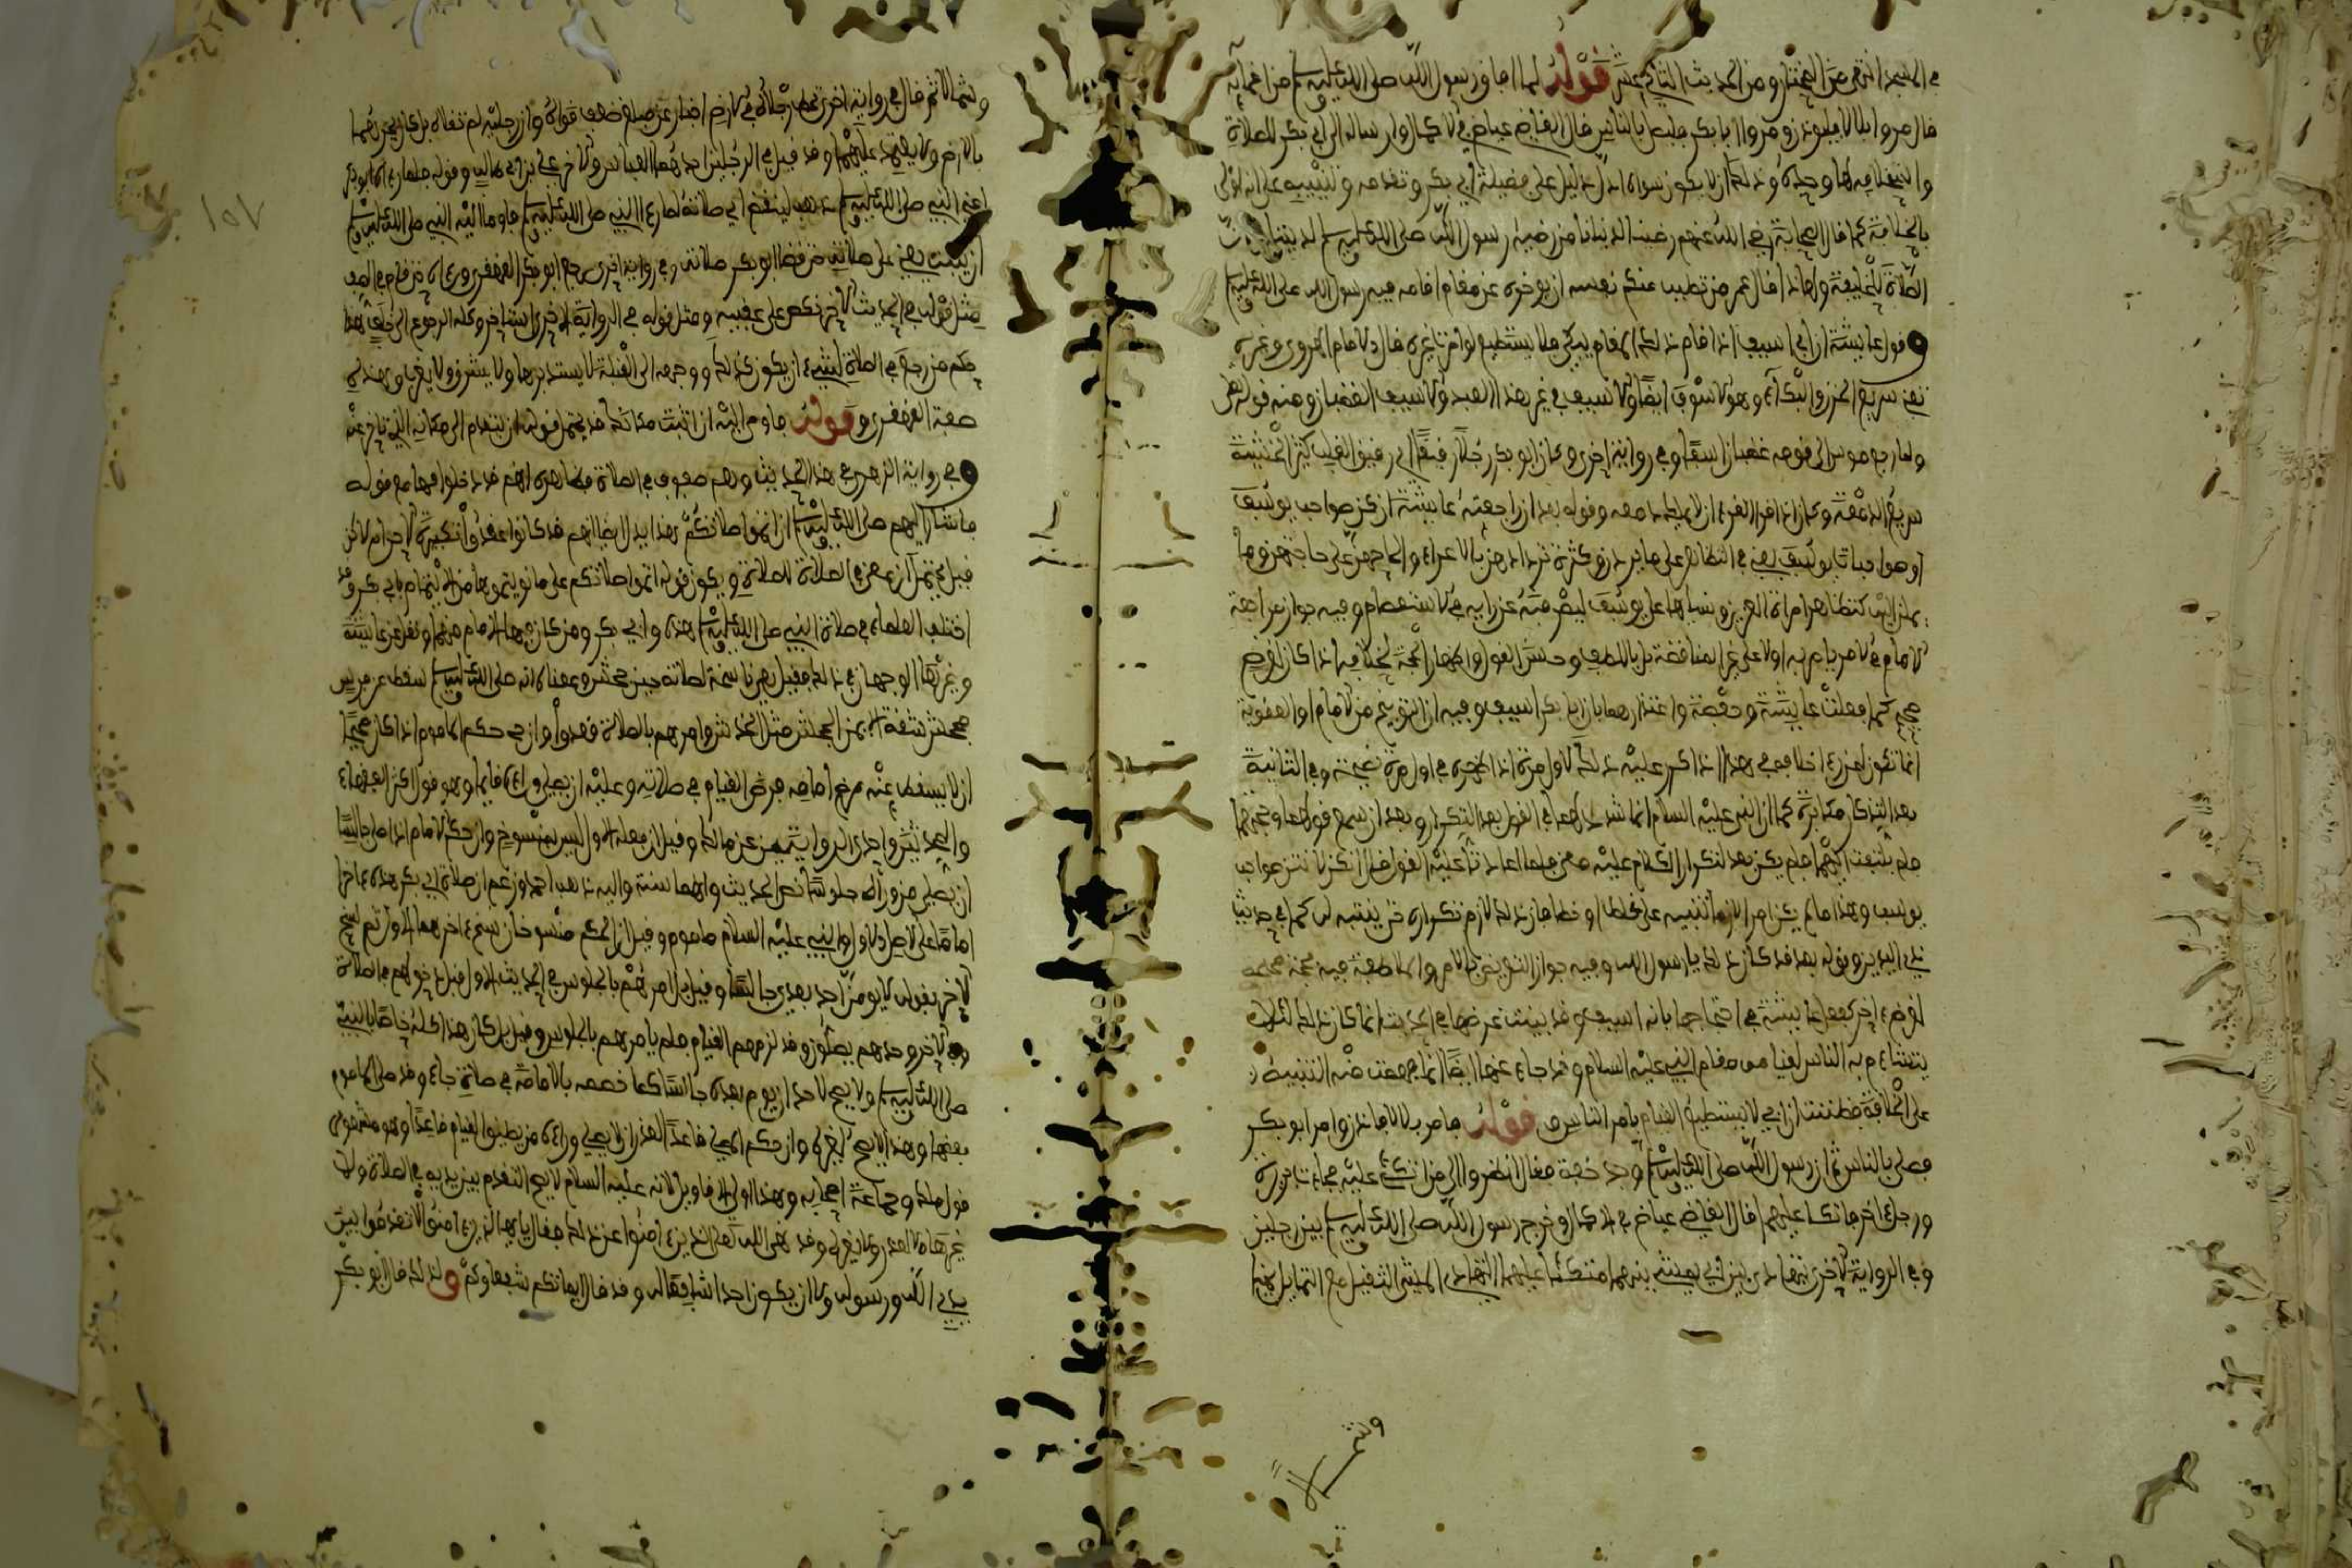 في المسجد انتهى من المختار ومن الحديث الثاني عشر قوله لما اصابه رسول الله صلى الله عليه وسلم من
قال مروا بلالا فليوذن ومروا ابا بكر فليصل بالناس قال القاضي عياض في الاكمال وارساله الى ابي بكر للصلاة
واستخلافه لها وحده وذلك ان لا يكون سواه ادل دليل على فضيلة ابي بكر وتقدمه وتنبيه على انه اولى
بالخلافة كما قال الصحابة رضي الله عنهم رضينا لدنيانا من رضيه رسول الله صلى الله عليه وسلم لديننا
الصلاة للخليفة ولهاذا قال عمر من تطيب منكم نفسه ان يوخره عن مقام اقامه فيه رسول الله صلى الله عليه وسلم
وقول عايشة ان ابي اسيف اذا قام ذلك المقام يبكي فلا يستطيع لو امرت غيره قال الامام الهروي وغيره
يعني سريع الحزن والبكاء وهو الاسوف ايضا والاسيف في غير هذا العبد والاسيف الغضبان ومنه قوله تعلى
ولما رجع موسى الى قومه غضبان اسفا وفي رواية اخرى وكان ابو بكر رجلا رقيقا اي رقيق القلب كثير الخشية
سريع الدمعة وكان اذا قرا القرءان لا يملك دمعه وقوله بعد ان راجعته عايشة انكن صواحب يوسف
او صواحبات يوسف يعني في التظاهر على ما يردن وكثرة تردادهن بالاغراء والحاحهن على حاجتهن وما
يملن اليه كتظاهر امراة العزيز ونسايها على يوسف ليصرفنه عن رايه في الاستعصام وفيه جواز مراجعة
الامام في الامر يامر به اولا على غير المناقضة بل باللطف وحسن القول واظهار الحجة لخلافه اذا كان لغرض
صحيح كما فعلت عايشة وحفصة واعتذارهما بان ابا بكر اسيف وفيه ان التوبيخ من الامام او العقوبة
انما تكون لمن راى خلافه في هذا اذا كرر عليه ذلك لاول مرة اذا اظهره في اول مرة نصيحة وفي الثانية
بعد التذكار مكابرة كما ان النبي عليه السلام انما شدد لهما في القول بعد التكرار وبعد ان سمع قولهما وحجتهما
فلم يلتفت اليهما فلم يكن بعد لتكرار الكلام عليه معنى فلما اعادتا عليه القول قال انكن لانتن صواحب
يوسف وهذا ما لم يكن امرا لازما تنبيه على غلط او خطا فان ذلك لازم تكراره حتى ينتبه له كما في حديث
ذي اليدين وقوله بعد قد كان ذلك يا رسول الله وفيه جواز التعريض بالكلام والملاطفة فيه بحجة صحيحة
لغرض ءاخر كفعل عايشة في احتجاجها بانه اسيف وقد بينت غرضها في الحديث انما كان ذلك لئلا
يتشاءم به الناس لقيامه مقام النبي عليه السلام وقد جاء عنها ايضا انها فهمت منه التنبيه
على الخلافة فظننت ان ابي لا يستطيع القيام بامر الناس قوله فامر بلالا فاذن وامر ابو بكر
فصلى بالناس ثم ان رسول الله صلى الله عليه وسلم وجد خفة فقال انظروا الي من اتكئ عليه فجاءت بريرة
ورجل ءاخر فاتكا عليهما قال القاضي عياض في الاكمال وخرج رسول الله صلى الله عليه وسلم بين رجلين
وفي الرواية الاخرى يتهادى بين اي يمشي بينهما متكئا عليهما التهادي المشي الثقيل مع التمايل يمينا
وشمالا
١٥٧
وشمالا ثم قال في رواية اخرى تخط رجلاه في الارض اخبار عن ضعف قواه وان رجليه لم تقلاه بل كان يجرهما
بالارض ولا يعتمد عليهما وقد قيل في الرجلين احدهما العباس والاخر علي بن ابي طالب وقوله فلما راى ابو بكر
اعني النبي صلى الله عليه وسلم ذهب لينقض اي صلاته لما راى النبي صلى الله عليه وسلم فاوما اليه النبي صلى الله عليه وسلم
ان يثبت يعني على صلاته حتى قضا ابو بكر صلاته وفي رواية اخرى رجع ابو بكر القهقرى وراءه حتى قام في الصف
مثل قوله في الحديث الاخر نكص على عقبيه ومثل قوله في الرواية الاخرى استاخر وكله الرجوع الى خلف هذا
حكم من رجع في الصلاة لشيء ان يكون كذلك ووجهه الى القبلة لا يستدبرها ولا يشرق ولا يغرب وهذه
صفة القهقرى وقوله فاومى اليه ان اثبت مكانك قد يحتمل قوله ان يتقدم الى مكانه الذي تاخر عنه
وفي رواية الزهري في هذا الحديث وهم صفوف في الصلاة فظاهره انهم قد دخلوا فيها مع قوله
فاشار اليهم صلى الله عليه وسلم ان اتموا صلاتكم هذا يدل ايضا انهم قد كانوا عقدوا تكبيرة الاحرام لاكن
قيل يحتمل ان بعض الصلاة للصلاة ويكون قوله اتموا صلاتكم على ما نويتموها من الايتمام بابي بكر وقد
اختلف العلماء في صلاة النبي صلى الله عليه وسلم هذه وابي بكر ومن كان فيها الامام منهما ونقل عن عايشة
وغيرها الوجهان في ذلك فقيل هي ناسخة لصلاته حين جحش ومعناه انه صلى الله عليه وسلم سقط عن فرس
فجحش شقه الايمن الجحش مثل الخدش وامرهم بالصلاة قعودا وان حكم الماموم اذا كان صحيحا
ان لا يسقط عنه مرض امامه فرض القيام في صلاته وعليه ان يصلي وراءه قايما وهو قول اكثر الفقهاء
والمحدثين واحدى الروايتين عن مالك وقيل ان فعله الاول ليس بمنسوخ وان حكم الامام اذا صلى جالسا
ان يصلي من وراءه جلوسا نص الحديث وانها سنة واليه ذهب احمد وزعم ان صلاة ابي بكر هذه كان
اماما على الاصل الاول وان النبي عليه السلام ماموم وقيل ان الحكم منسوخان نسخ ءاخرهما الاول ثم نسخ
الاخر بقوله لا يومن احد بعدي جالسا وقيل بل امرهم بالجلوس في الحديث الاول قبل دخولهم في الصلاة
وفي الاخر وجدهم يصلون وقد لزمهم القيام فلم يامرهم بالجلوس وقيل بل كان هذا كله خاصا بالنبي
صلى الله عليه وسلم ولا يصح لاحد ان يوم بعده جالسا كما خصه بالامامة في صلاة جاء وقد صلى الماموم
بعضها وهذا لا يصح لغيره وان حكم المصلي قاعدا لعذر ان لا يصلي وراءه من يطيق القيام قاعدا وهو مشهور
قول مالك وجماعة اصحابه وهذا اولى الاقاويل لانه عليه السلام لا يصح التقدم بين يديه في الصلاة ولا في
غيرها لا لعذر ولا لغيره وقد نهى الله تعلى الذين ءامنوا عن ذلك فقال يايها الذين ءامنوا لا تقدموا بين
يدي الله ورسوله ولا ان يكون احدا شافعا له وقد قال ايمتكم شفعاوكم ولذلك قال ابو بكر